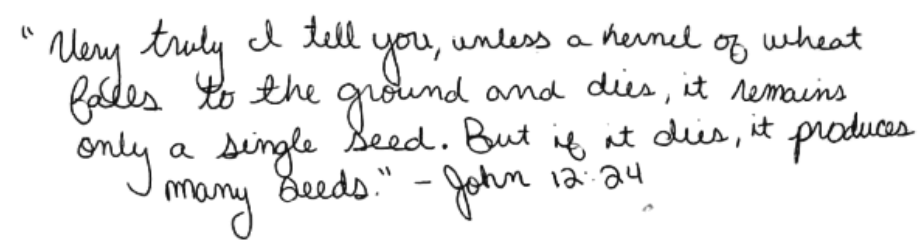 "Very truly I tell you, unless a kernel of wheat
falls to the ground and dies, it remains
only a single seed. But if it dies, it produces
many seeds." - John 12:24